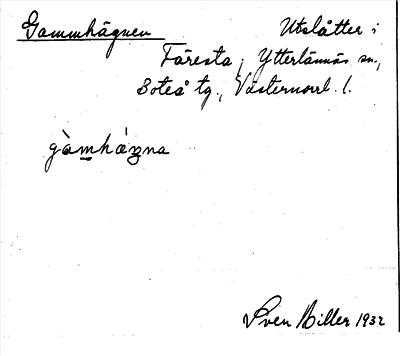 Gammhägnen Utslåtter i
Färesta, Ytterlännäs sn.,
Boteå tg., Västernorrl. l.
gàmhǽŋna
Sven Biller 1932